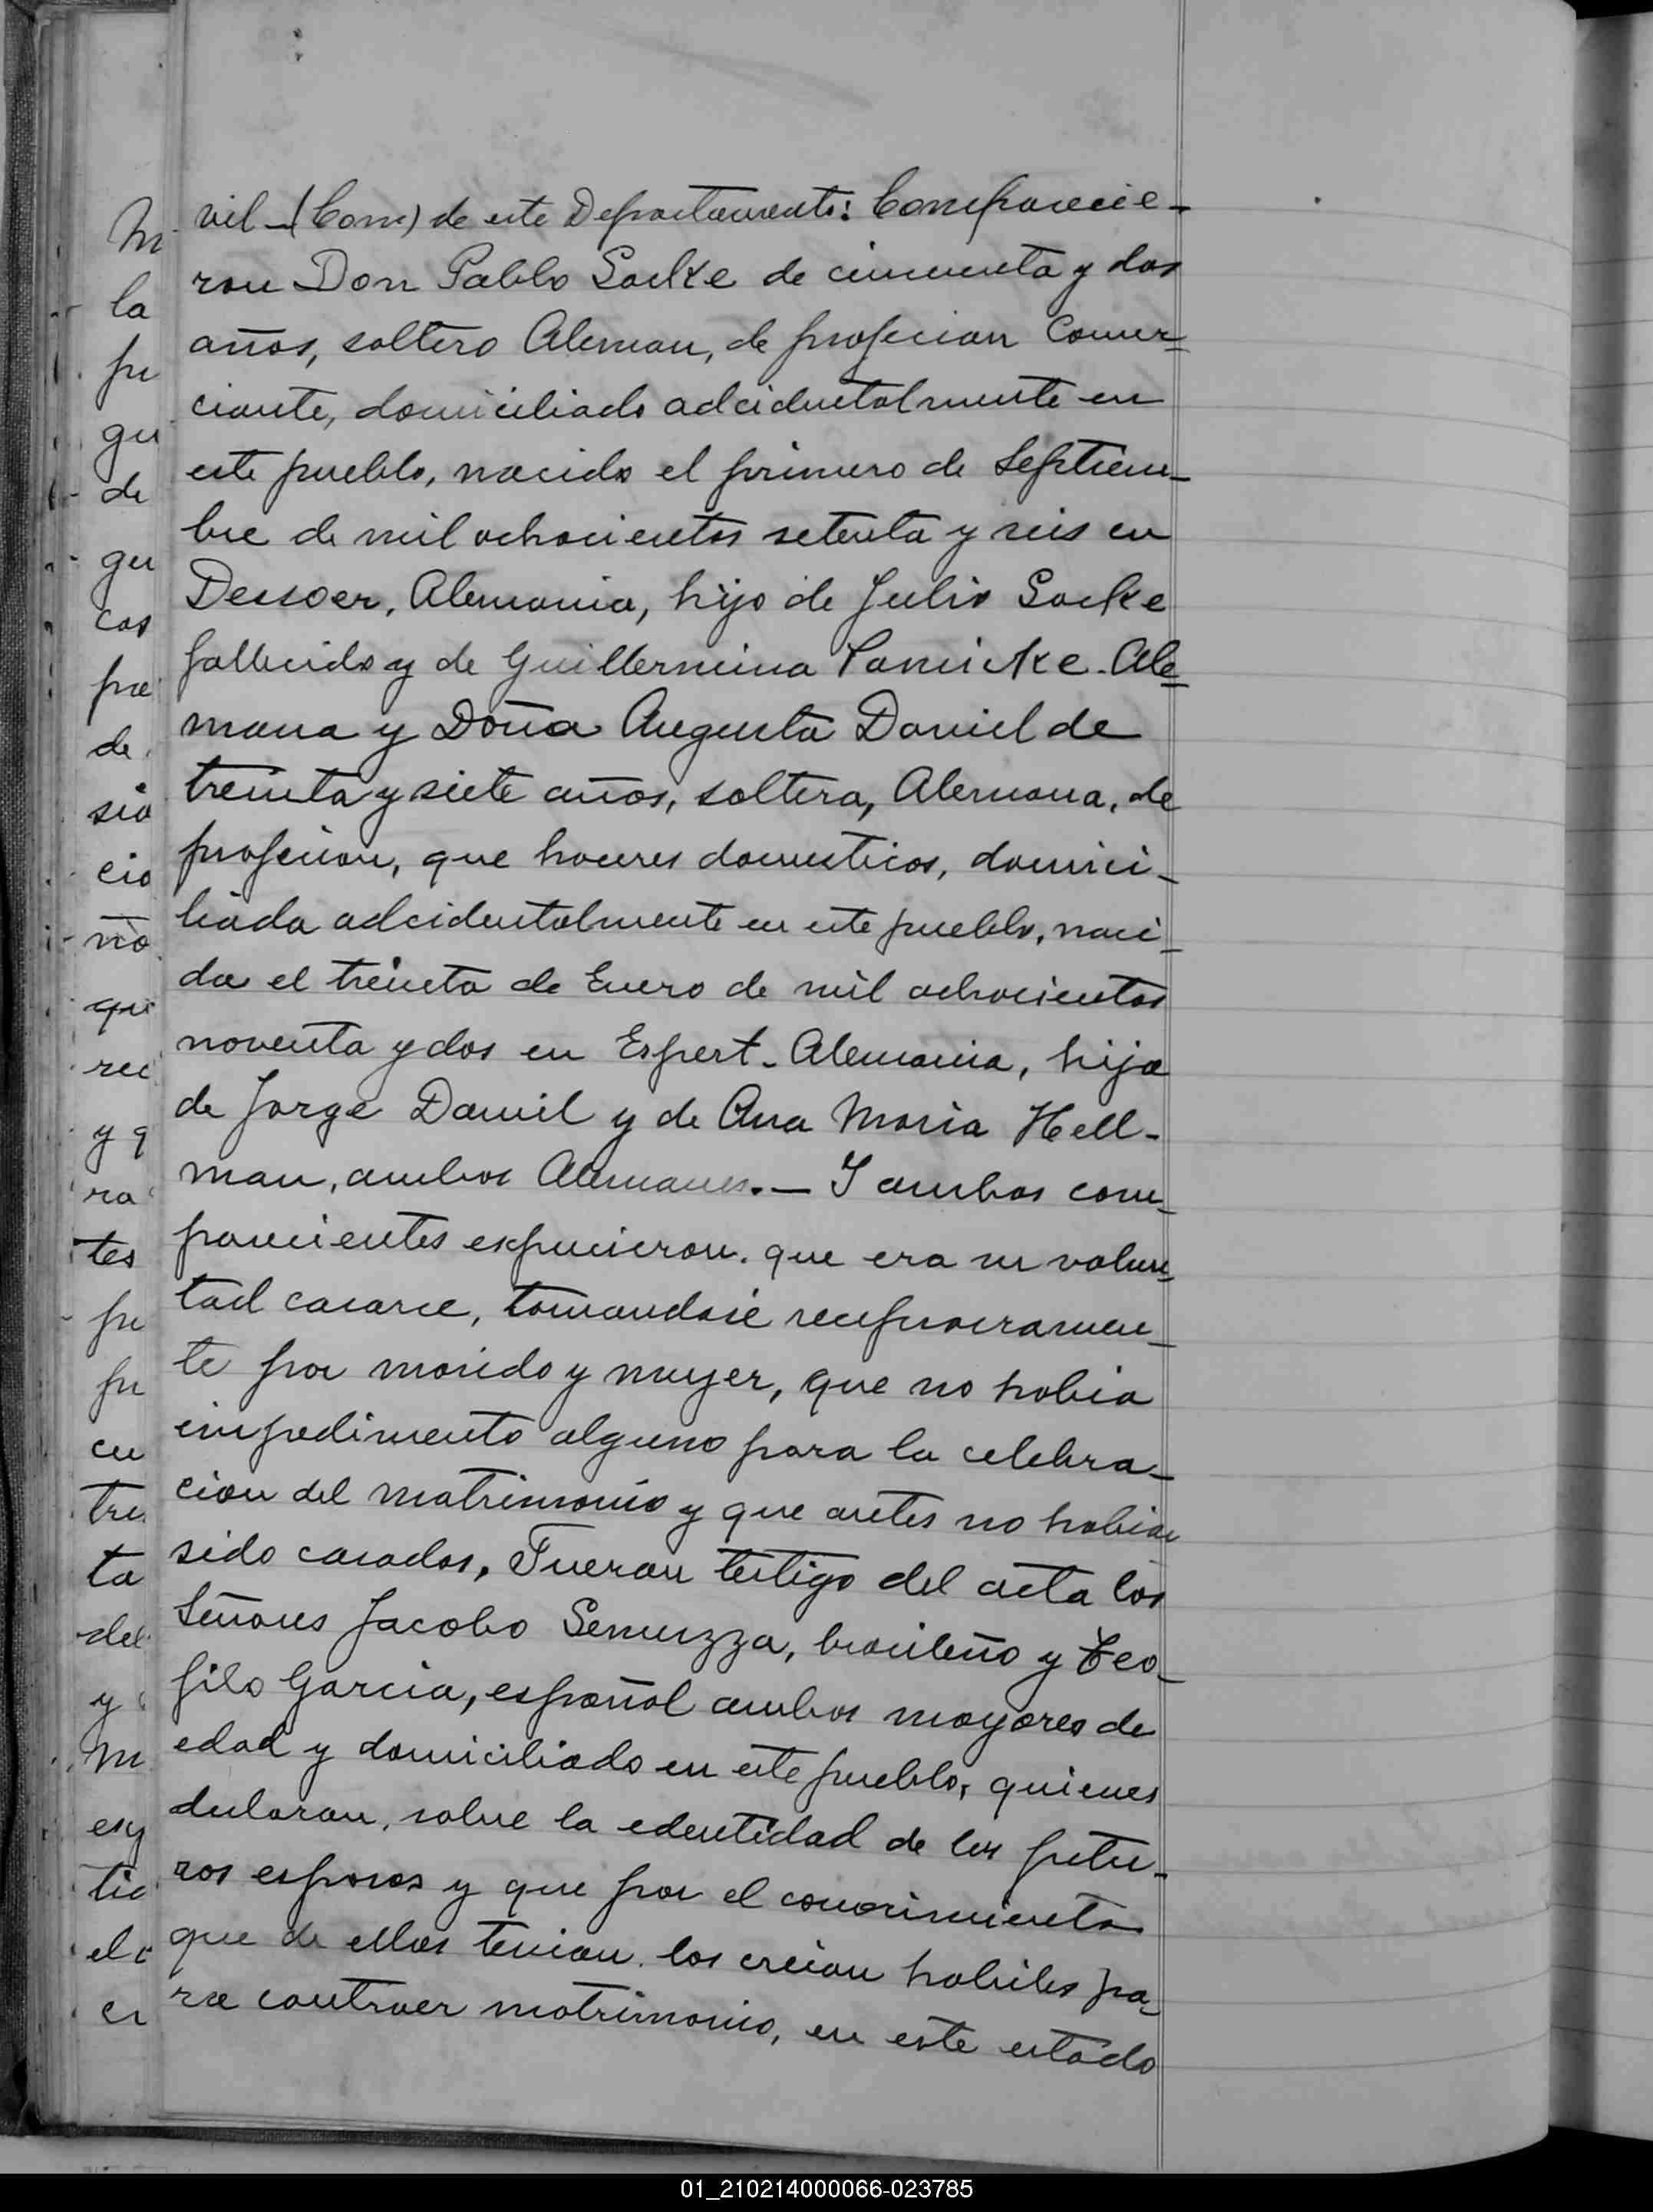 vil-(Com) de este Departamento: Comparecie-
ron Don Pablo Sacke de cincuenta y dos
años, soltero Aleman, de profecion Comer-
ciante, domiciliado adcidentalmente en
este pueblo, nacido el primero de Septiem-
bre de mil ochocientos setenta y seis en
Dessoer, Alemania, hijo de Julio Sacke
fallecido y de Guillermina Panicke-Ale-
mana y Doña Augusta Daniel de
treinta y siete años, soltera, Alemana, de
profecion, que haceres domesticos, domici-
liada adcidentalmente en este pueblo, naci-
da el treinta de Enero de mil ochocientos
noventa y dos en Espert-Alemania, hija
de Jorge Daniel y de Ana Maria Hell-
man, ambos Alemanes.- I ambos com-
parecientes expucieron. que era su volun-
tad casarce, tomandose reciprocramen-
te por marido y muger, que no habia
impedimento alguno para la celebra-
cion del matrimonio y que antes no habian
sido casados, Fueran testigo del acta los
Señores Jacobo Semuzza, brasileño y Teo-
filo Garcia, español ambos mayores de
edad y domiciliado en este pueblo, quienes
declaran, sobre la edentidad de los futu-
ros esposos y que por el conocimiento
que de ellos tenian. los creian habiles pa-
ra contraer matrimonio, en este estado
M
la
pu
gu
de
gu
cas
pre
de
sio
cio
no
qu
rec
y q
ra
tes
pu
pu
cu
tre
ta
del
y
M
esy
tic
el c
er
01_210214000066-023785